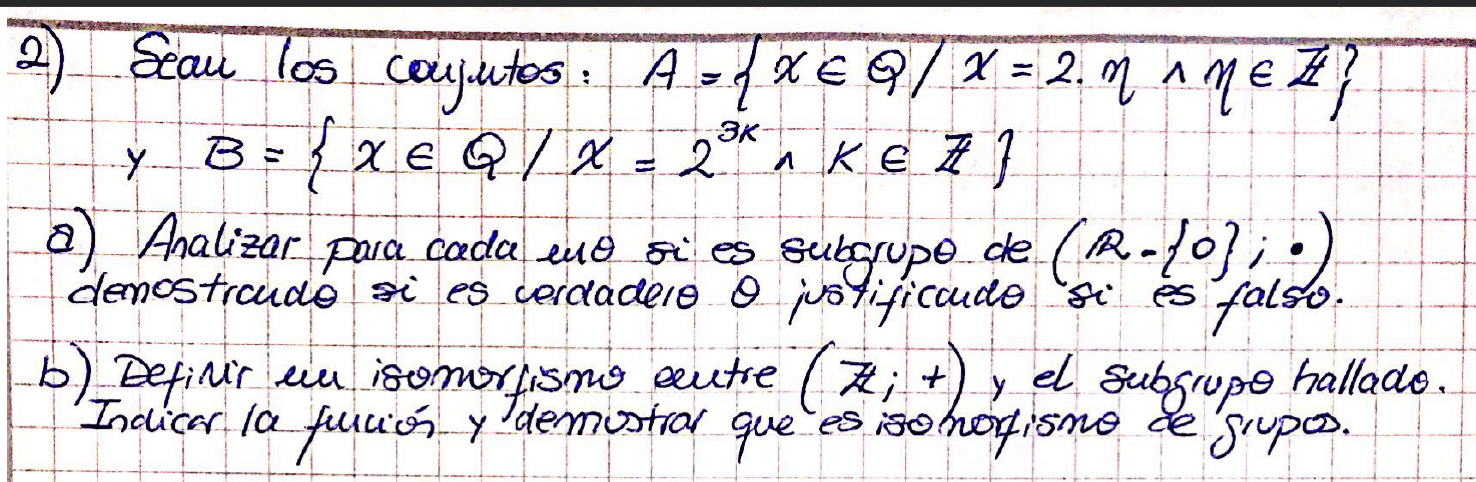 2) Sean los conjutos: A = { x ∈ Q / x = 2. n ∧ n ∈ Z }
y B = { x ∈ Q / x = 2^{3K} ∧ K ∈ Z }
a) Analizar para cada uno si es subgrupo de (R - {0} ; •)
demostrando si es verdadero o justificando si es falso.
b) Definir un isomorfismo entre (Z; +) y el subgrupo hallado.
Indicar la función y demostrar que es isomorfismo de grupos.